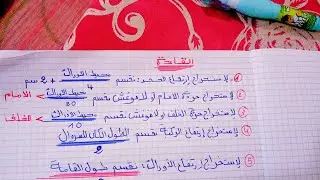 القاعدة
① لاستخراج ارتفاع الحجر: نقسم محيط الاوراك / 4 + 2 سم
② لاستخراج حردة الامام أو لافوغش نقسم محيط الاوراك / 20 > الامام
③ لاستخراج حردة الخلف أو لافوغش نقسم محيط الاوراك / 10 > الخلف
④ لاستخراج ارتفاع الركبة نقسم الطول الكلي للسروال / 2
⑤ لاستخراج ارتفاع الاوراك: نقسم طول القامة